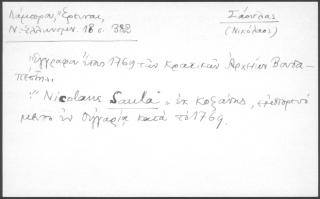 Λάμπρου, "Ἔρευναι,
Ν. Ἑλληνομν. 18 σ. 382
Σάουλας
(Νικόλαος)
Ἔγγραφον ἔτους 1769 τῶν κρατικῶν Ἀρχείων Βουδα-
πέστης.
"Nicolaus Saulá", ἐκ Κοζάνης, ἐμπορευό
μενος ἐν Οὑγγαρίᾳ κατὰ τὸ 1769.